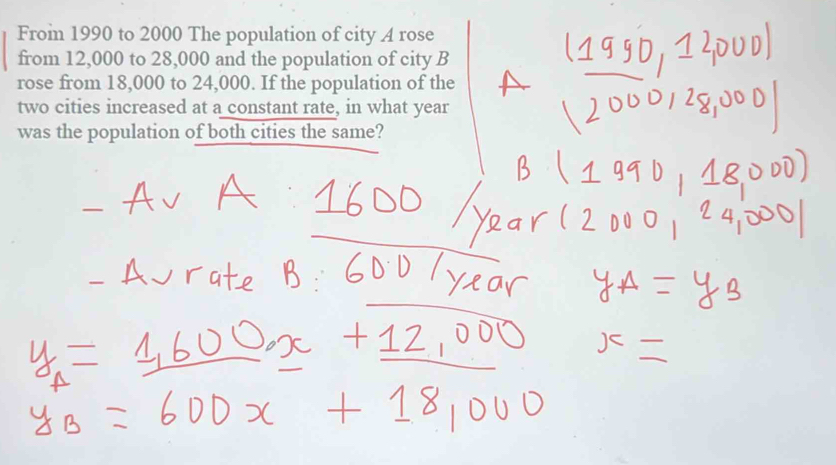 From 1990 to 2000 The population of city A rose
from 12,000 to 28,000 and the population of city B
rose from 18,000 to 24,000. If the population of the
two cities increased at a constant rate, in what year
was the population of both cities the same?
A (1990, 12,000)
(2000, 28,000)
B (1990, 18,000)
(2000, 24,000)
- Av A : 1600 / year
- Av rate B : 600 / year
yA = yB
x =
yA = 1,600.x + 12,000
yB = 600x + 18,000